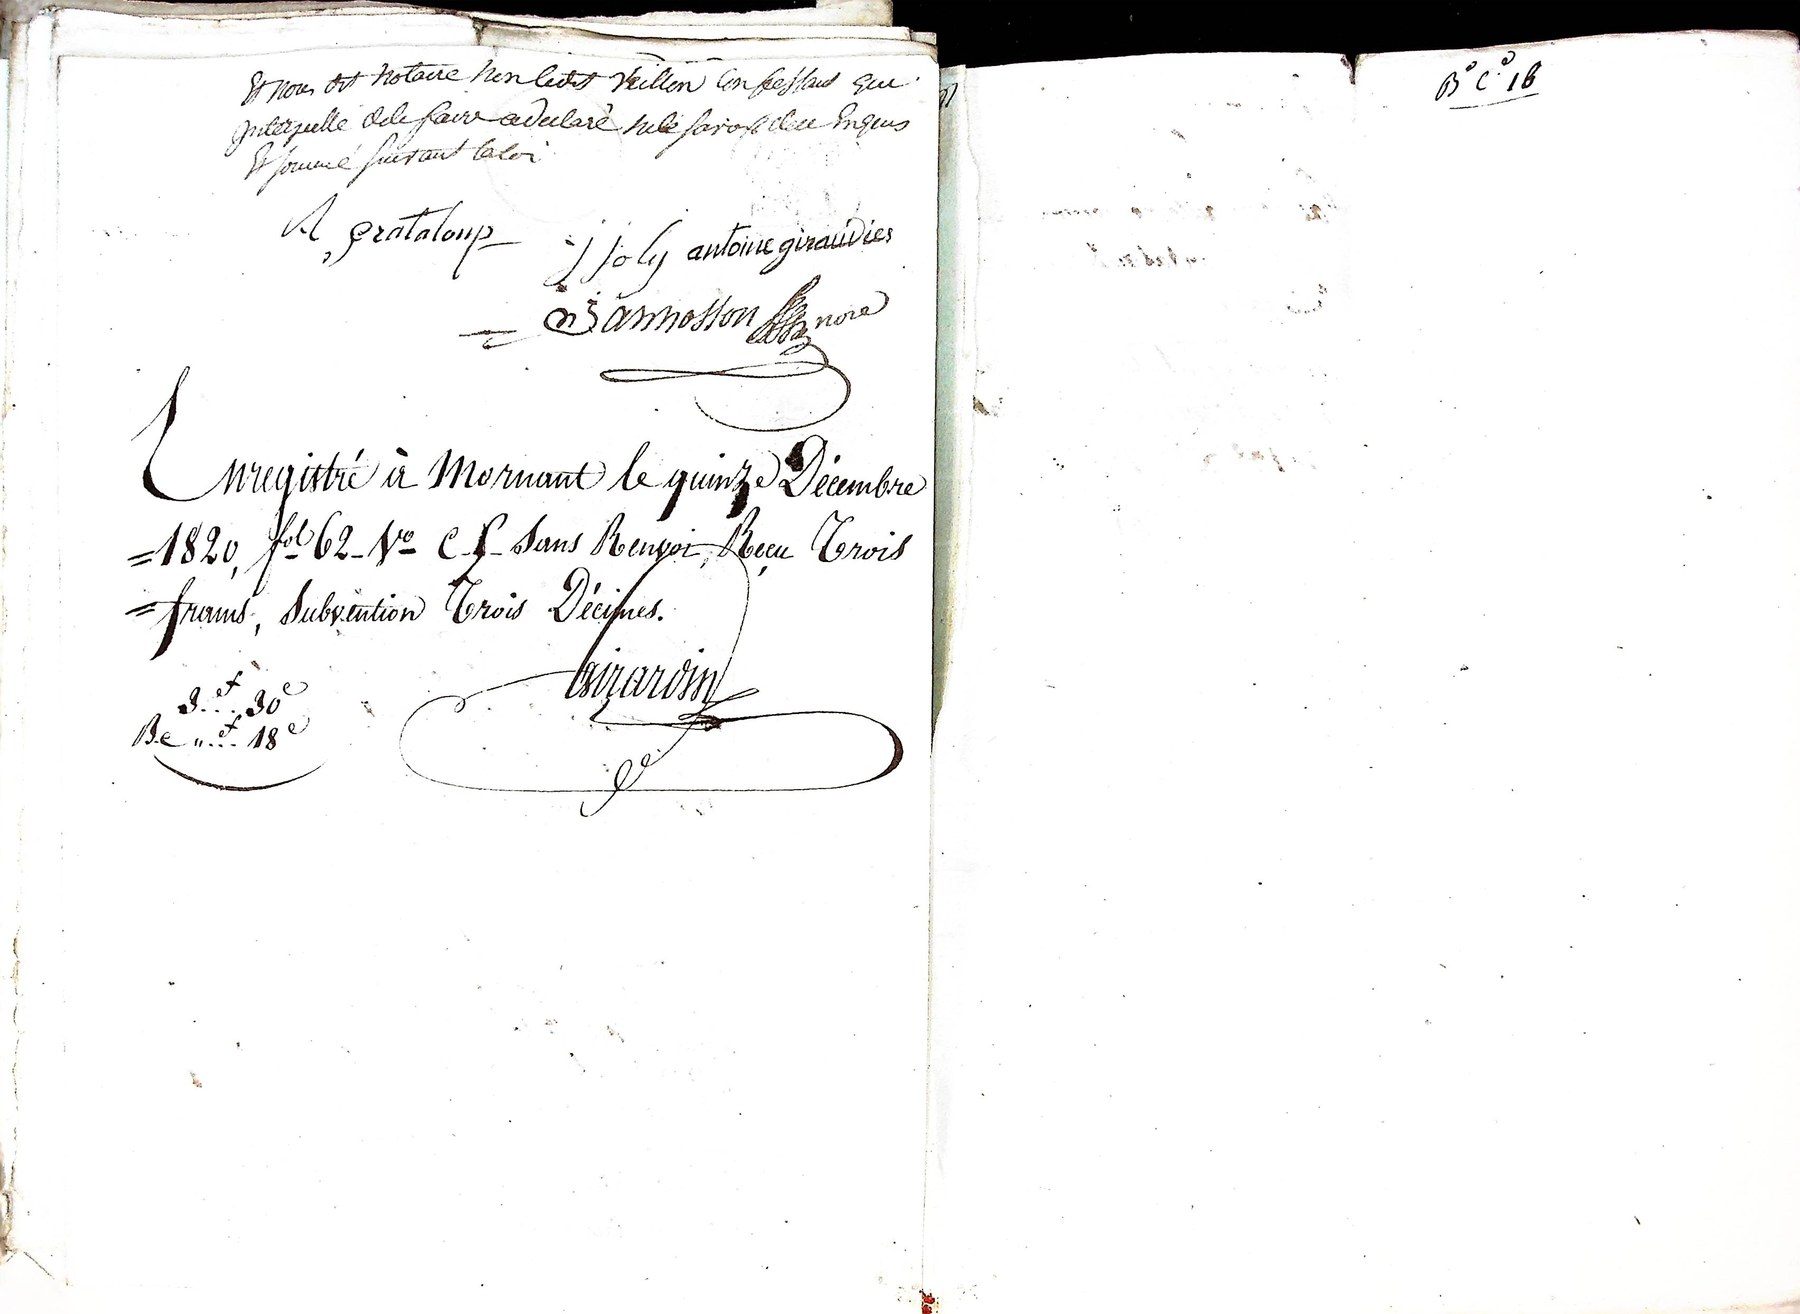 Et nous dit notaire non ledit Veillon Confessant qui
Interpellé de le faire a déclaré ne le savoir de ce Enquis
Et sommé suivant la loi
A grataloup
j joly antoine giraudier
Jannosson nore
Enregistré à Mornant le quinze Décembre
=1820, fol 62 Vo C. Sans Renvoi, Reçu Trois
=francs, Subvention Trois Décimes.
Girardin
3..f 30c
Be "..f 18c
Bo Co 16